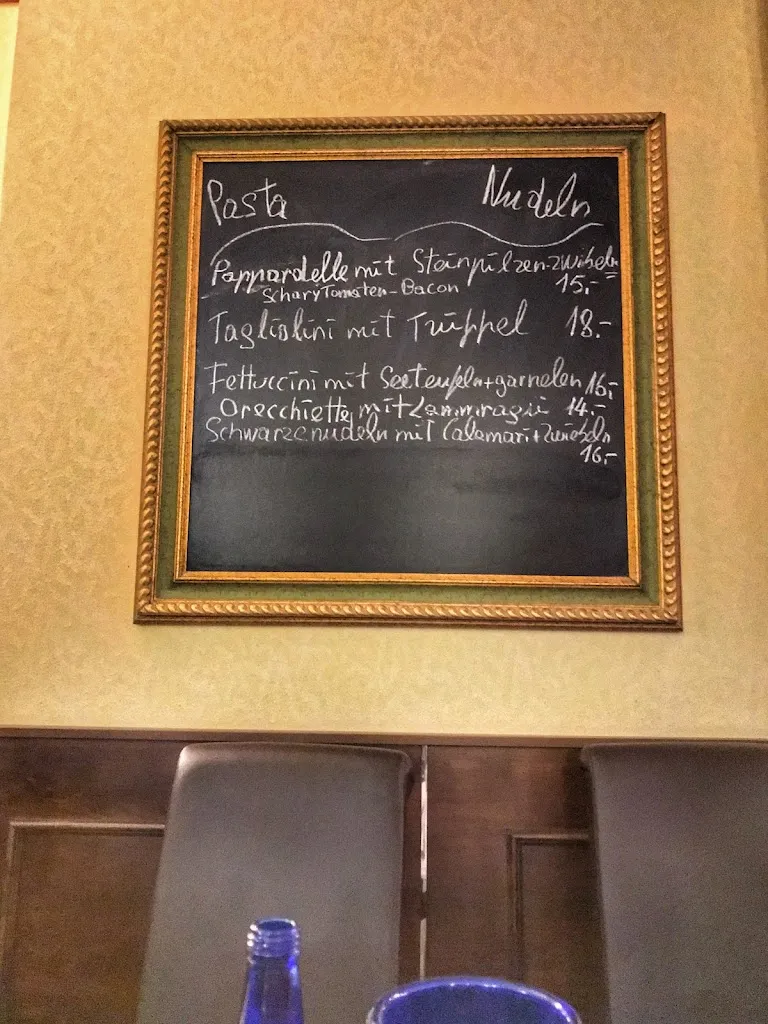 Pasta Nudeln
Pappardelle mit Steinpilzen-zwibeln
Scharf Tomaten-Bacon 15,-
Tagliolini mit Trüppel 18.-
Fettuccini mit Seeteufeln+garnelen 16,-
Orecchiette mit Lammragu 14.-
Schwarzenudeln mit Calamari+Zwiebeln
16,-